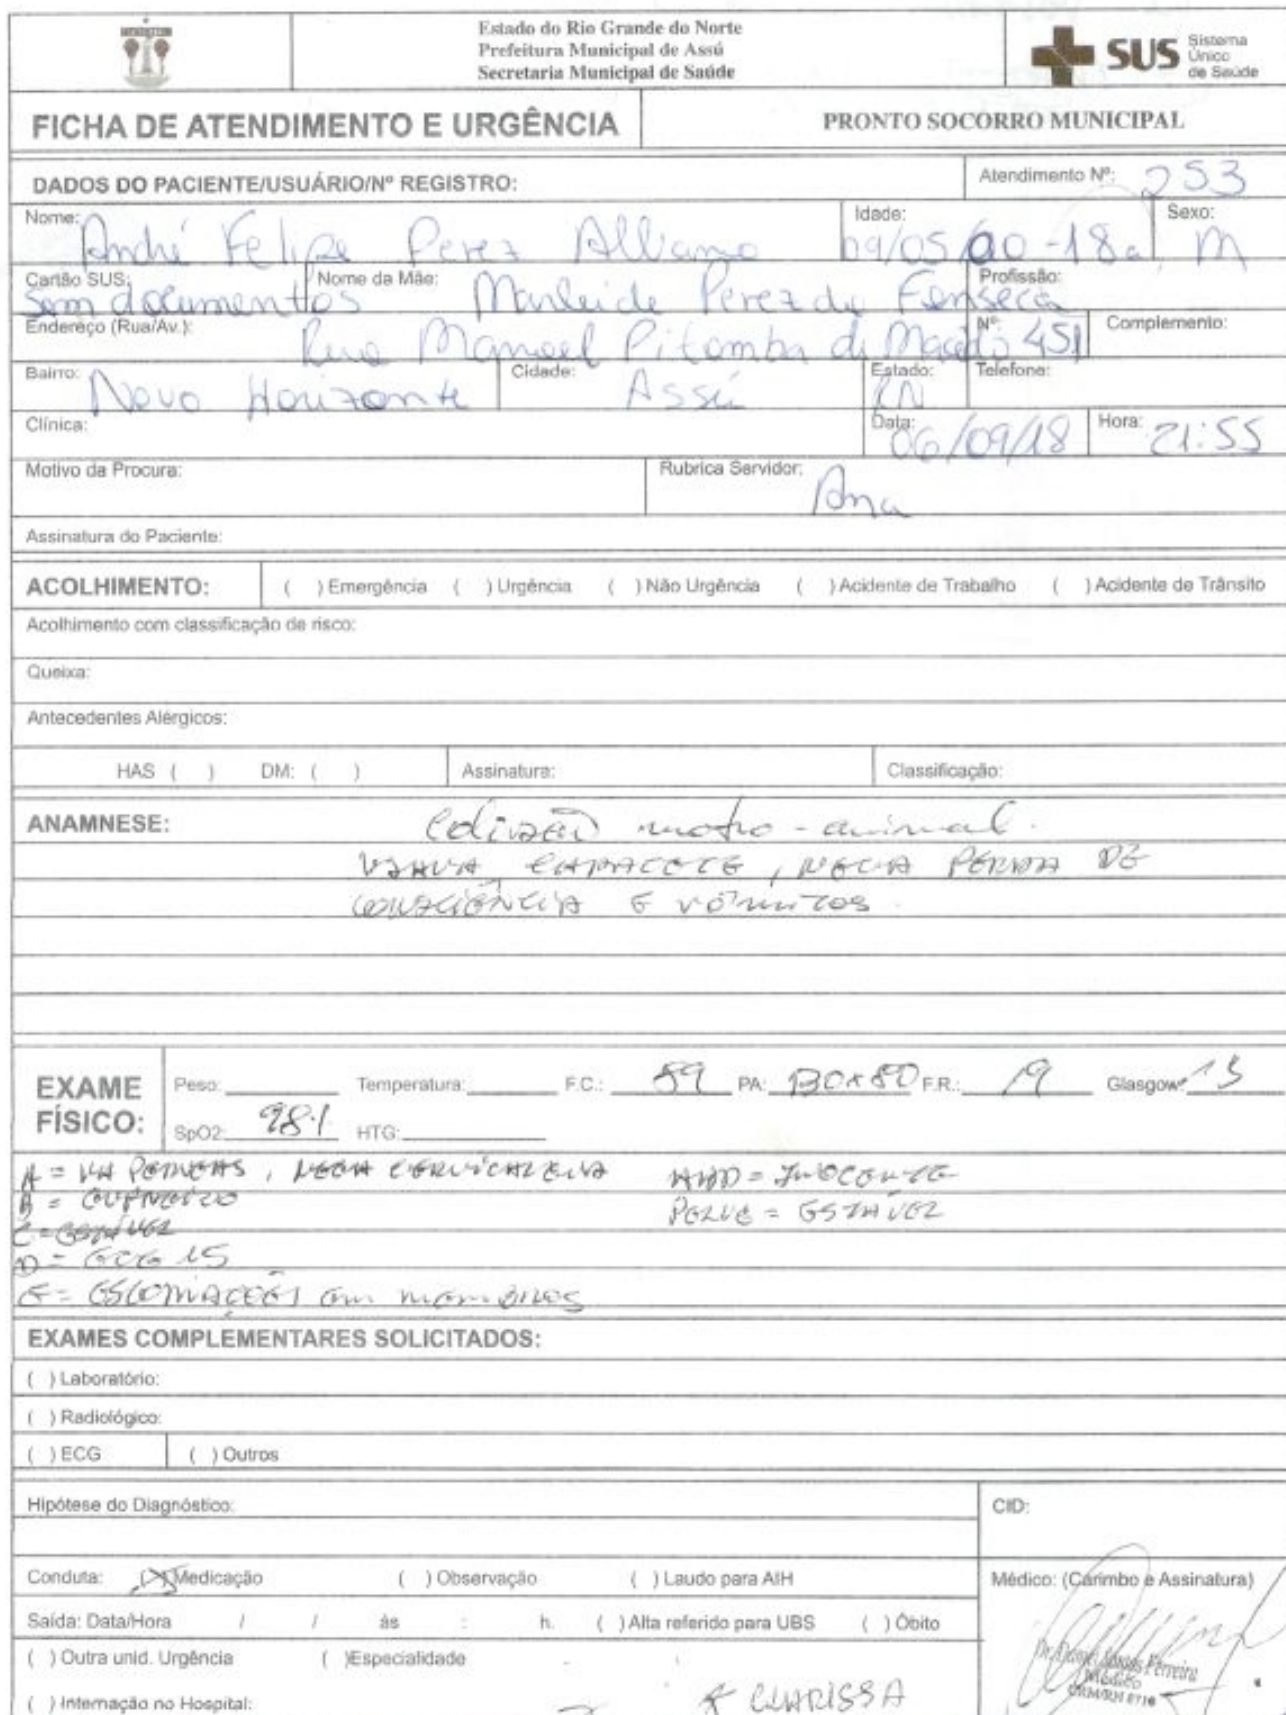 Estado do Rio Grande do Norte
Prefeitura Municipal de Assú
Secretaria Municipal de Saúde
SUS Sistema Único de Saúde
FICHA DE ATENDIMENTO E URGÊNCIA
PRONTO SOCORRO MUNICIPAL
DADOS DO PACIENTE/USUÁRIO/Nº REGISTRO: Atendimento Nº: 253
Nome: André Felipe Perez Idade: 09/05/00 - 18a Sexo: M
Cartão SUS: Sem documentos Nome da Mãe: Marleide Perez da Fonseca Profissão:
Endereço (Rua/Av.): Rua Manoel Pitomba di Macedo Nº: 451 Complemento:
Bairro: Novo Horizonte Cidade: Assú Estado: RN Telefone:
Clínica: Data: 06/09/18 Hora: 21:55
Motivo da Procura: Rubrica Servidor: Ana
Assinatura do Paciente:
ACOLHIMENTO: ( ) Emergência ( ) Urgência ( ) Não Urgência ( ) Acidente de Trabalho ( ) Acidente de Trânsito
Acolhimento com classificação de risco:
Queixa:
Antecedentes Alérgicos:
HAS ( ) DM: ( ) Assinatura: Classificação:
ANAMNESE: Colisão moto - animal.
USAVA CAPACETE, NEGA PERDA DE
CONSCIÊNCIA E VÔMITOS.
EXAME FÍSICO: Peso: Temperatura: F.C.: 89 PA: 130x80 F.R.: 19 Glasgow: 15
SpO2: 98% HTG:
A = VA PERVEAS, NEGA CERVICALGIA ABD = INOCENTE
B = PELVE = ESTÁVEL
C = ESTÁVEL
D = ECG 15
E = ESCORIAÇÕES em membros
EXAMES COMPLEMENTARES SOLICITADOS:
( ) Laboratório:
( ) Radiológico:
( ) ECG ( ) Outros
Hipótese do Diagnóstico: CID:
Conduta: (X) Medicação ( ) Observação ( ) Laudo para AIH Médico: (Carimbo e Assinatura)
Saída: Data/Hora / / às : h. ( ) Alta referido para UBS ( ) Óbito
( ) Outra unid. Urgência ( )Especialidade
( ) Internação no Hospital: CLARISSA
Ferreira
Médico